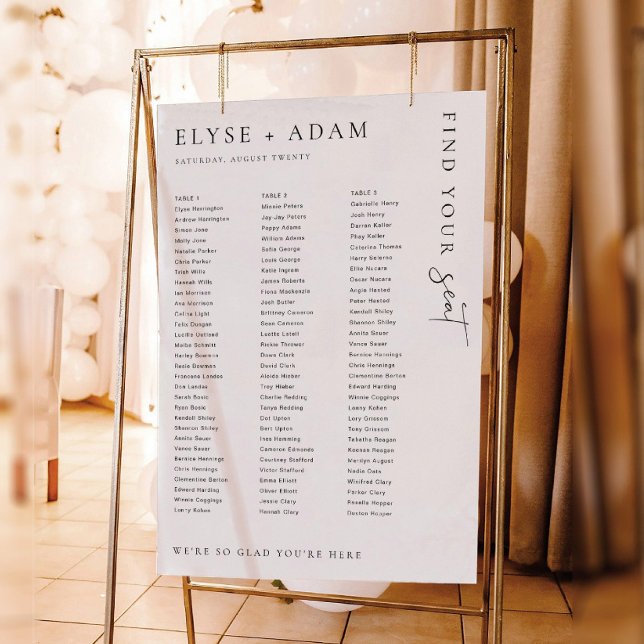 ELYSE + ADAM
SATURDAY, AUGUST TWENTY
FIND YOUR seat
TABLE 1
Elyse Harrington
Andrew Harrington
Simon Jone
Molly Jone
Natalie Parker
Chris Parker
Trish Willis
Hannah Willis
Ian Morrison
Ava Morrison
Celina Light
Felix Dungan
Lucille Outland
Maibe Schmitt
Harley Bowman
Rosie Bowman
Francene Landes
Don Landes
Sarah Bosic
Ryan Bosic
Kendall Shiley
Shannon Shiley
Annita Sauer
Vance Sauer
Bernice Hennings
Chris Hennings
Clementine Barton
Edward Harding
Winnie Coggings
Lanny Kohen
TABLE 2
Minnie Peters
Jay-Jay Peters
Poppy Adams
William Adams
Sofia George
Louis George
Katie Ingram
James Roberts
Fiona Mackenzie
Josh Butler
Brittney Cameron
Sean Cameron
Lucille Latell
Rickie Thrower
Dawn Clark
David Clark
Aleida Hieber
Troy Hieber
Charlie Redding
Tanya Redding
Dot Upton
Bert Upton
Ines Hemming
Cameron Edmonds
Courtney Stafford
Victor Stafford
Emma Elliott
Oliver Elliott
Jessie Clary
Hannah Clary
TABLE 3
Gabrielle Henry
Josh Henry
Darran Kallor
Phay Kallor
Caterina Thomas
Harry Salerno
Ellie Nucara
Oscar Nucara
Angie Hasted
Peter Hasted
Kendall Shiley
Shannon Shiley
Annita Sauer
Vance Sauer
Bernice Hennings
Chris Hennings
Clementine Barton
Edward Harding
Winnie Coggings
Lanny Kohen
Lory Grissom
Tony Grissom
Tabatha Reagan
Keenan Reagan
Marilyn August
Nadia Oats
Winifred Clary
Parker Clary
Rosella Hopper
Daxton Hopper
WE'RE SO GLAD YOU'RE HERE